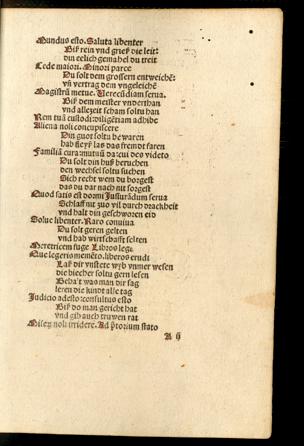 Mundus esto. Saluta libenter
Biß rein vnd grieß die leit:
din eelich gemahel du treit
Cede maiori. Minori parce
Du solt dem grossern entweichē:
vn̄ vertrag dem vngeleichē
Magistrū metue. Verecūdiam serua.
Biß dem meister vnderthan
vnd allezeit scham soltu han
Rem tuā custodi: diligētiam adhibe
Aliena noli concupiscere
Din guot soltu bewaren
hab fleyß las das fremdt faren
Familiā cura: mutuū da: cui des videto
Du solt din huß beruchen
den wechsel soltu suchen
Dich recht wem du borgest
das du dar nach nit sorgest
Quod satis est dormi Jusiurādum serua
Schlaff nit zuo vil durch drackheit
vnd halt din geschworen eid
Solue libenter. Raro conuiua
Du solt geren gelten
vnd hab wirtschafft selten
Meretricem fuge Libros lege
Que legeris memēto. liberos erudi
Laß dir vnstete wyb vnmer wesen
die biecher soltu gern lesen
Behalt was man dir sag
leren die kindt alle tag
Judicio adesto: consultus esto
Biß do man gericht hat
vnd gib auch truwen rat
Milez noli irridere. Ad p̄torium stato
A ij